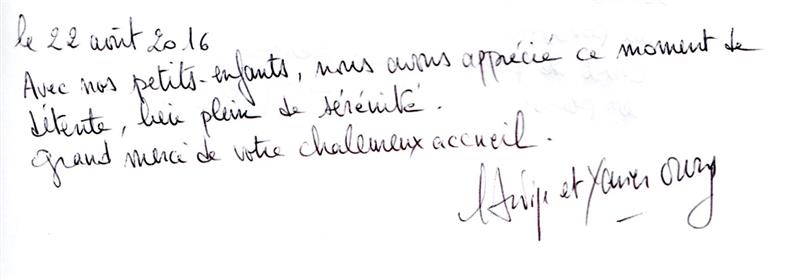 le 22 août 2016
Avec nos petits-enfants, nous avons apprécié ce moment de
détente, lieu plein de sérénité.
grand merci de votre chaleureux accueil.
et Xavier Oury